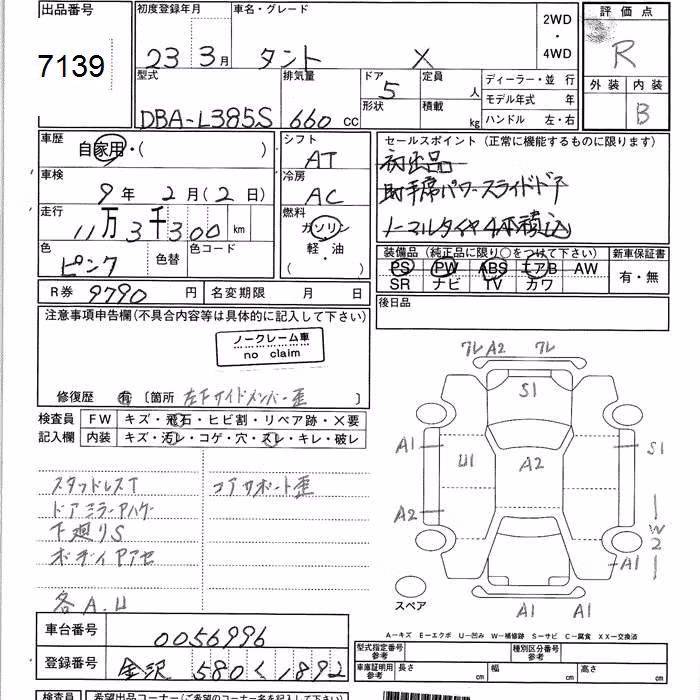 出品番号
7139
初度登録年月
23 3月
車名・グレード
タント X
2WD
・
4WD
評価点
R
型式
DBA-L385S
排気量
660 cc
ドア
5
形状
定員
人
積載
kg
ディーラー・並 行
モデル年式 年
ハンドル 左・右
外装 内装
B
車歴
自家用・( )
シフト
AT
車検
9年 2月(2日)
冷房
AC
走行
11万3千300 km
燃料
ガソリン
軽・油
( )
色
ピンク
色替
色コード
R券 9790 円
名変期限 月 日
セールスポイント (正常に機能するものに限ります)
初出品
助手席パワースライドドア
ノーマルタイヤ4本積込
装備品 (純正品に限り○をつけて下さい)
PS PW ABS エアB AW
SR ナビ TV カワ
新車保証書
有・無
後日品
注意事項申告欄(不具合内容等は具体的に記入して下さい)
ノークレーム車
no claim
修復歴 有 〔箇所 左下サイドメンバー歪 〕
検査員
記入欄
FW キズ・飛石・ヒビ割・リペア跡・X要
内装 キズ・汚レ・コゲ・穴・スレ・キレ・破レ
スタッドレスT
コアサポート歪
ドアミラーアハゲ
下廻りS
ボディPアセ
各A.U
ワレ A2 ワレ
S1
A1
U1
A2
S1
A2
W2
A1
A1 A1
スペア
A-キズ E-エクボ U-凹み W-補修跡 S-サビ C-腐食 XX-交換済
車台番号 0056996
登録番号 金沢 580 く 1892
型式指定番号
参考
種別区分番号
参考
車庫証明用
参考
長さ cm
幅 cm
高さ cm
検査員
希望出品コーナー(ご希望のコーナー名を記入して下さい)